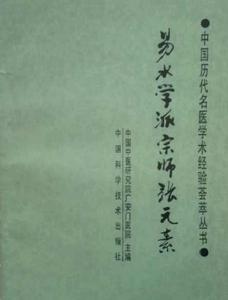 ●中国历代名医学术经验荟萃丛书●
易水学派宗师张元素
中国中医研究院广安门医院 主编
中国科学技术出版社